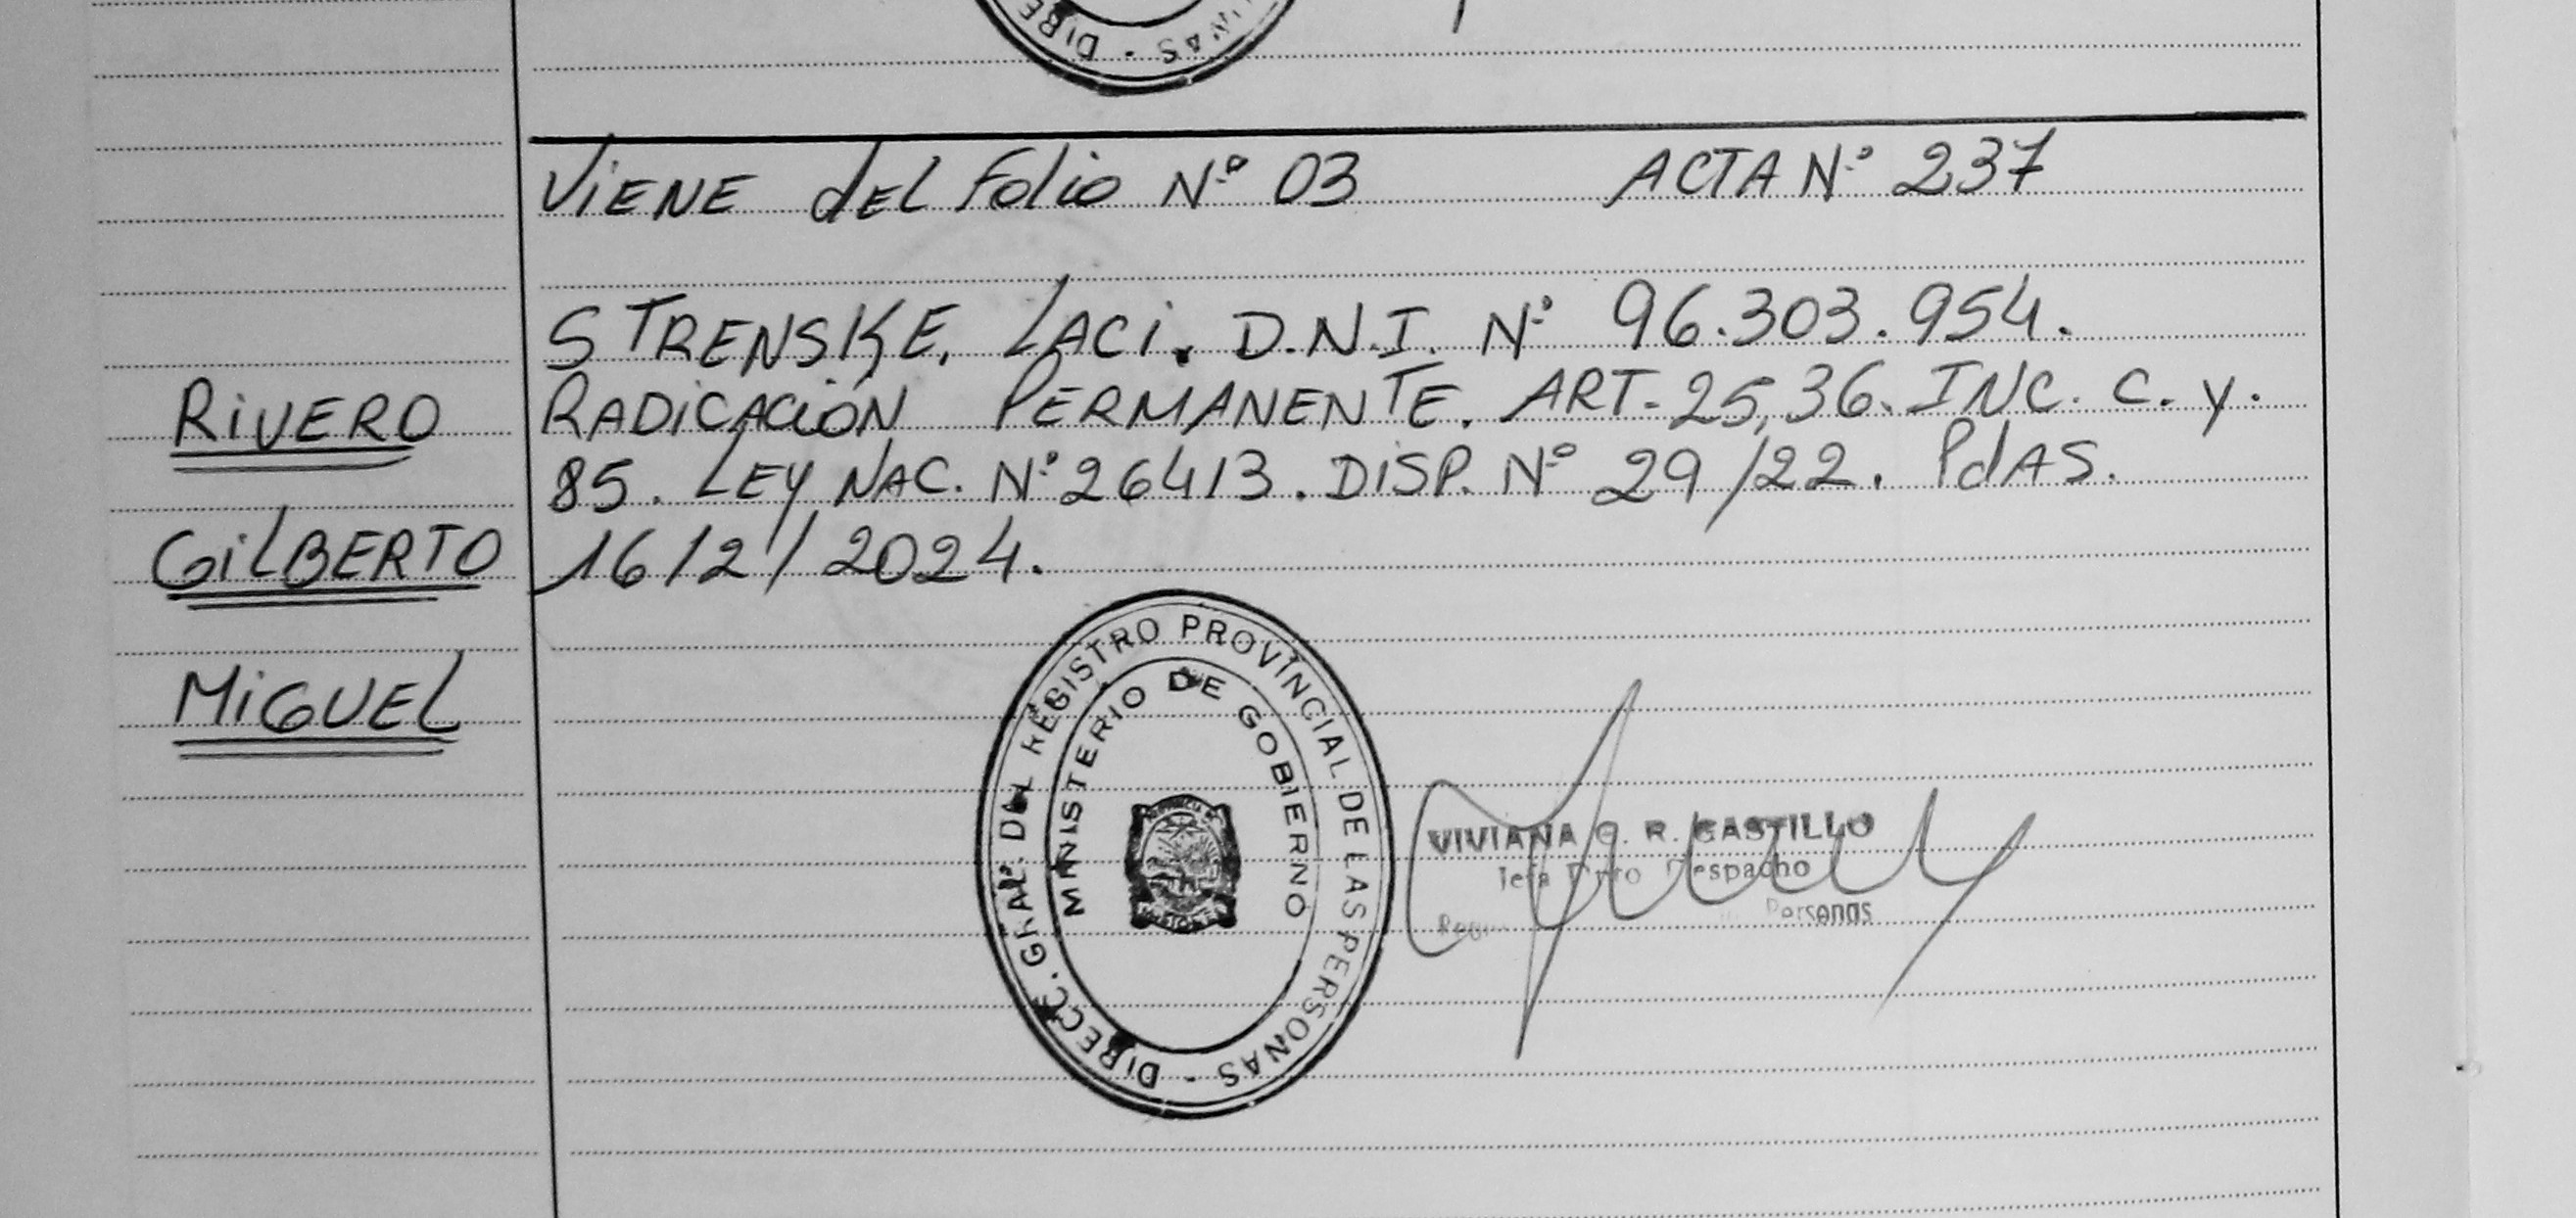 DIRE
NAS -
VIENE dEL Folio N° 03 ACTA N° 237
STRENSKE, LACI. D.N.I. N° 96.303.954.
RIVERO
RADICACIÓN PERMANENTE. ART. 25, 36. INC. C. y.
85. LEY NAC. N° 26413. DISP. N° 29/22. PdAS.
GILBERTO
16/2/2024.
MIGUEL
DIRECC. GRAL. DEL REGISTRO PROVINCIAL DE LAS PERSONAS -
MINISTERIO DE GOBIERNO
VIVIANA G. R. CASTILLO
Jefa Dpto Despacho
Personas